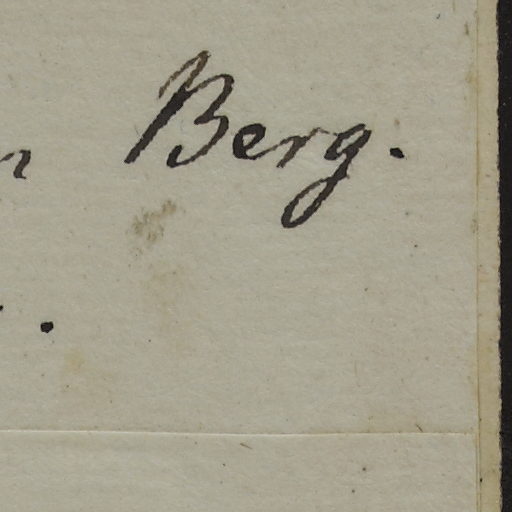 n Berg.
.